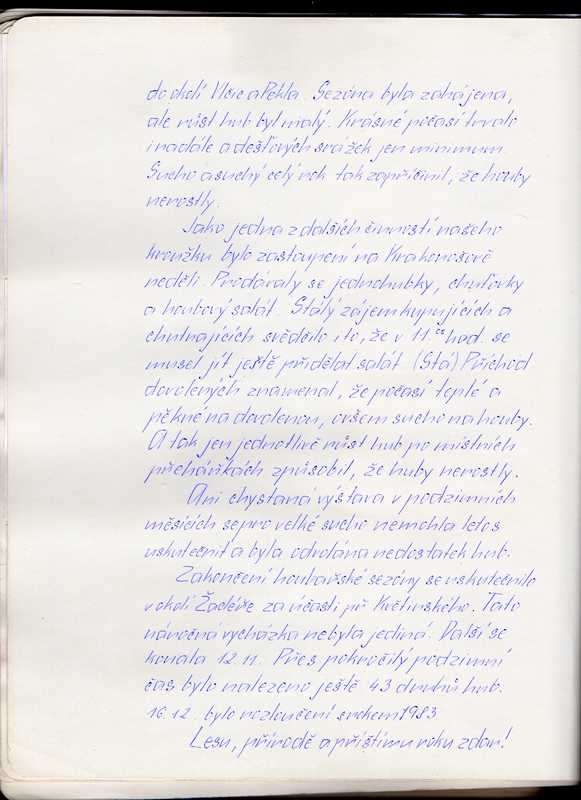 do okolí Vlčic a Pekla. Sezóna byla zahájena,
ale růst hub byl malý. Krásné počasí trvalo
i nadále a dešťových srážek jen minimum.
Sucho a suchý celý rok tak zapříčinil, že houby
nerostly.
Jako jedna z dalších činností našeho
kroužku bylo zastoupení na Krakonošově
neděli. Prodávaly se jednohubky, chuťovky
a houbový salát. Stálý zájem kupujících a
chutnajících svědčilo i to, že v 11.00 hod. se
musel jít ještě přidělat salát. (Stá) Příchod
dovolených znamenal, že počasí teplé a
pěkné na dovolenou, ovšem sucho na houby.
A tak jen jednotlivě růst hub po místních
přeháňkách způsobil, že huby nerostly.
Ani chystaná výstava v podzimních
měsících se pro velké sucho nemohla letos
uskutečnit a byla odvolána nedostatek hub.
Zakončení houbařské sezóny se uskutečnilo
v okolí Žacléře za účasti př Květinského. Tato
náročná vycházka nebyla jediná. Další se
konala 12.11. Přes pokročilý podzimní
čas bylo nalezeno ještě 43 druhů hub.
16.12. bylo rozloučení s rokem 1983.
Lesu, přírodě a příštímu roku zdar!